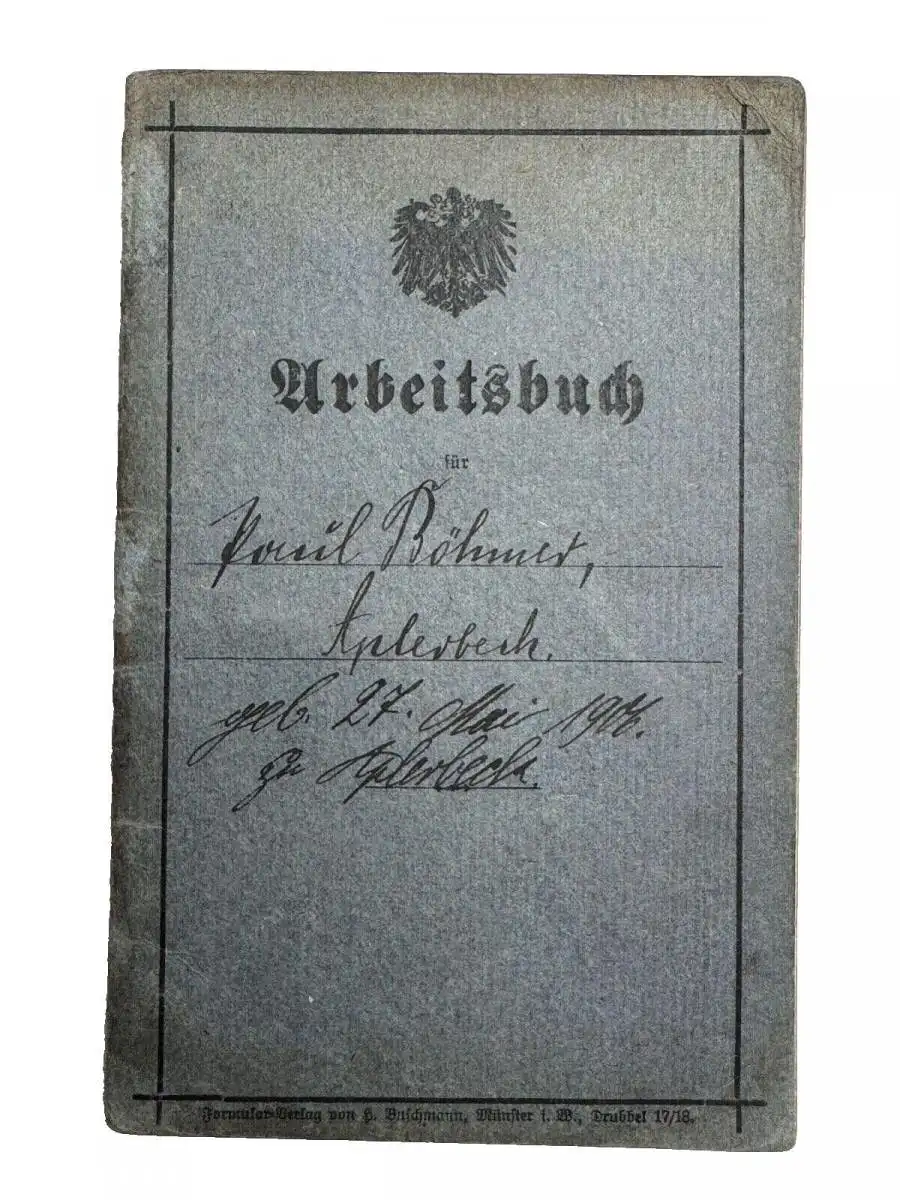 Arbeitsbuch
für
Paul Böhmer,
Aplerbeck.
geb. 27. Mai
zu Aplerbeck.
Formular-Verlag von H. Buschmann, Münster i. W., Drubbel 17/18.